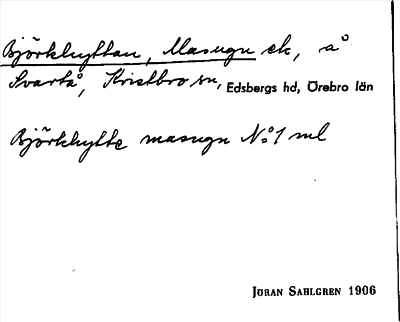 Björkhyttan, Masugn ek, å
Svartå, Kvistbro sn, Edsbergs hd, Örebro län
Björkhytte masugn N:o 1 ml
JÖRAN SAHLGREN 1906